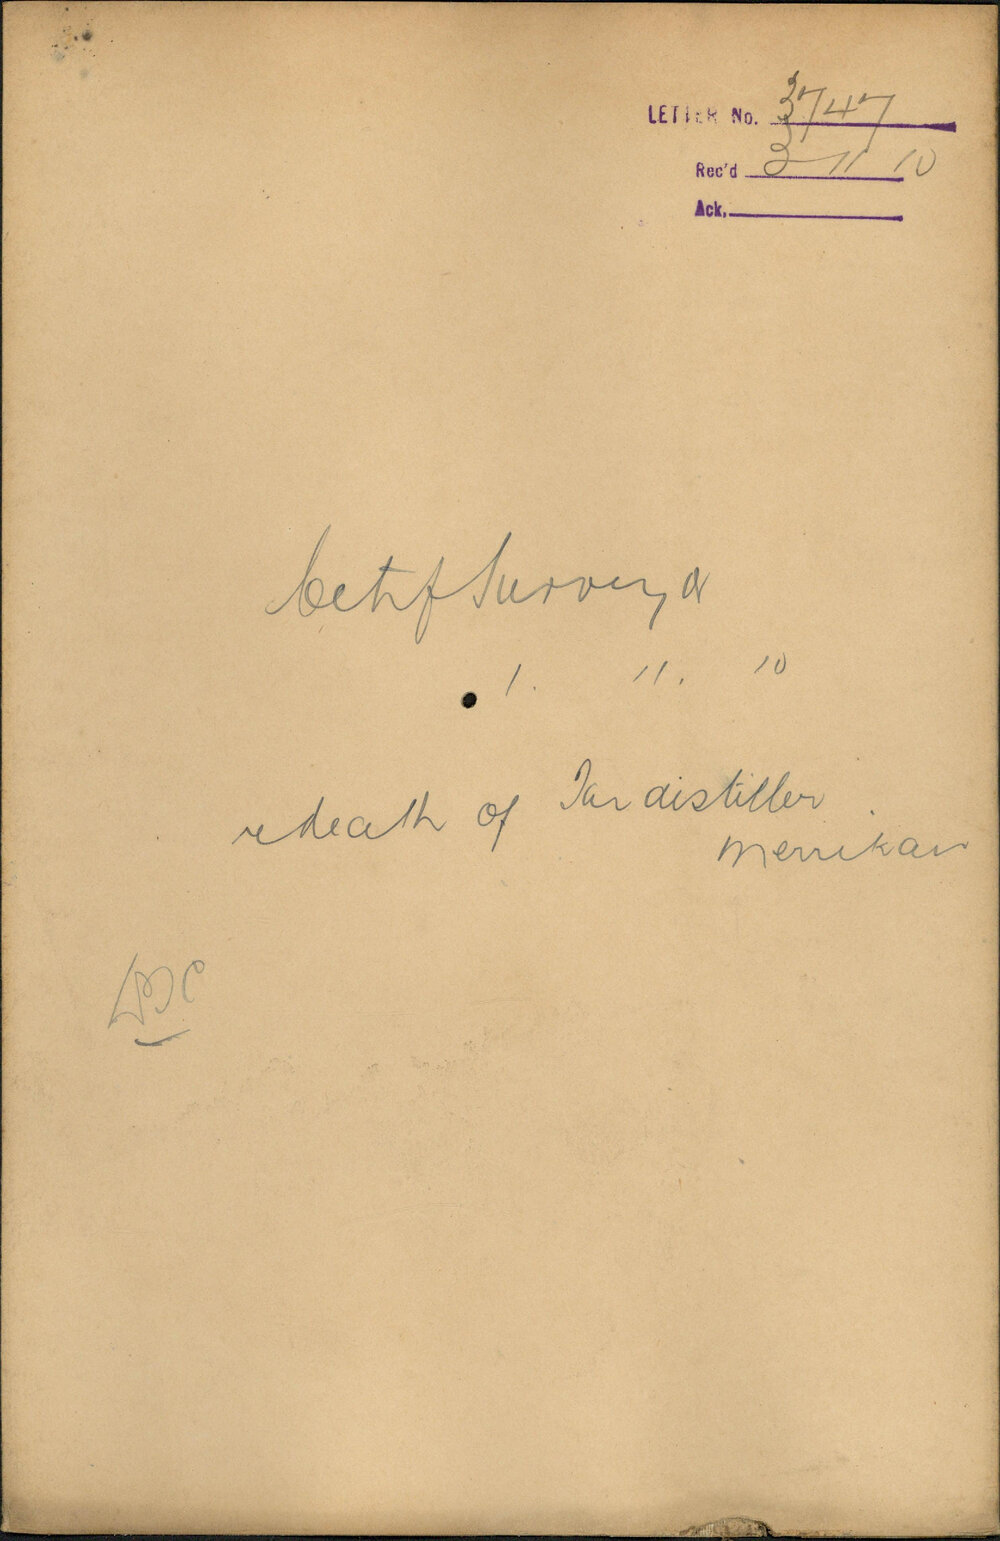 LETTER No. 3747
Rec'd 3 11 10
Ack.
Surveyor
1. 11. 10
re death of Tar distiller
Merrikan